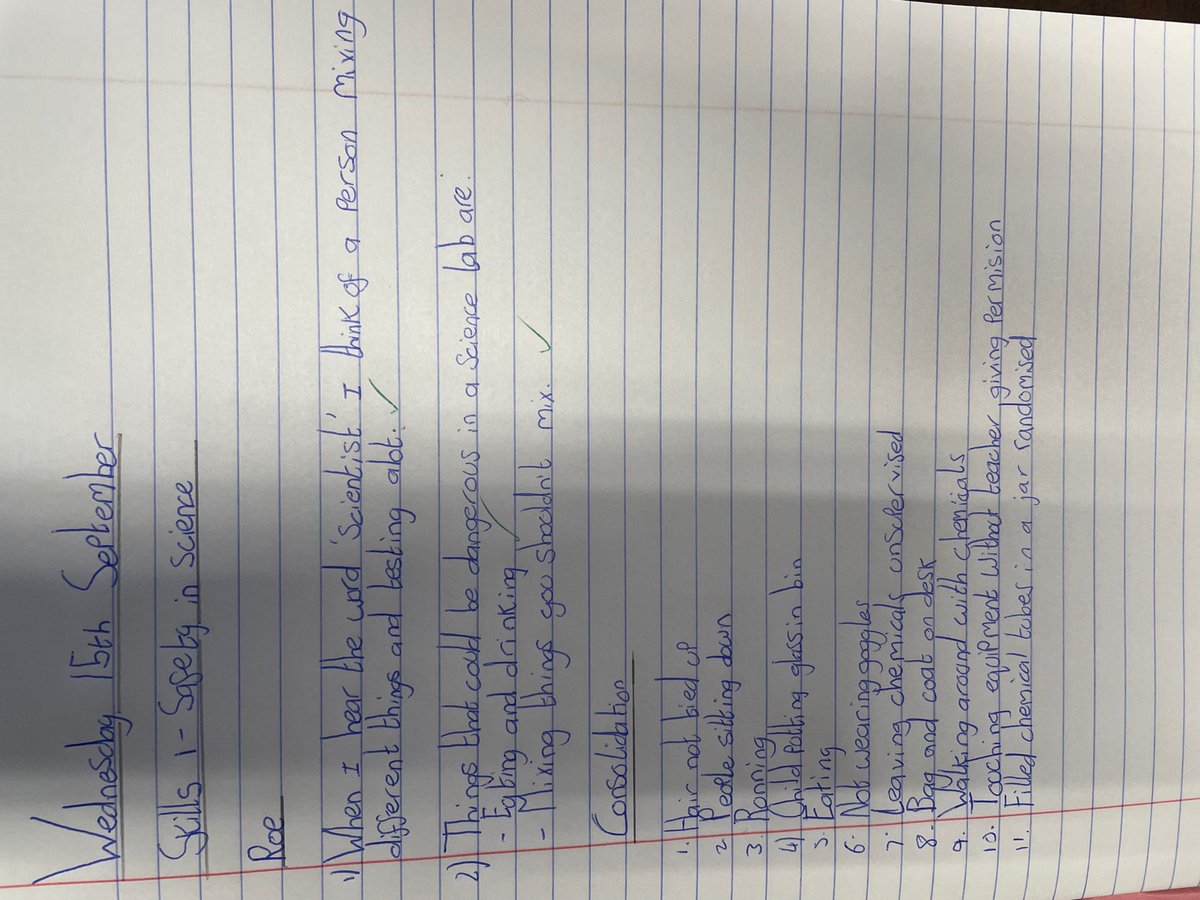 Wednesday 15th September
Skills 1 - Safety in Science
Roe
1) When I hear the word 'Scientist' I think of a Person Mixing
different things and testing alot.
2) Things that could be dangerous in a Science lab are:
- Eating and drinking
- Mixing things you shouldn't mix.
Consolidation
1. Hair not tied up
2. People sitting down
3. Running
4) Child Putting glass in bin
5. Eating
6. Not wearing goggles
7. Leaving chemicals unsupervised
8. Bag and coat on desk
9. Walking around with chemicals
10. Touching equipment without teacher giving Permision
11. Filled chemical tubes in a jar randomised